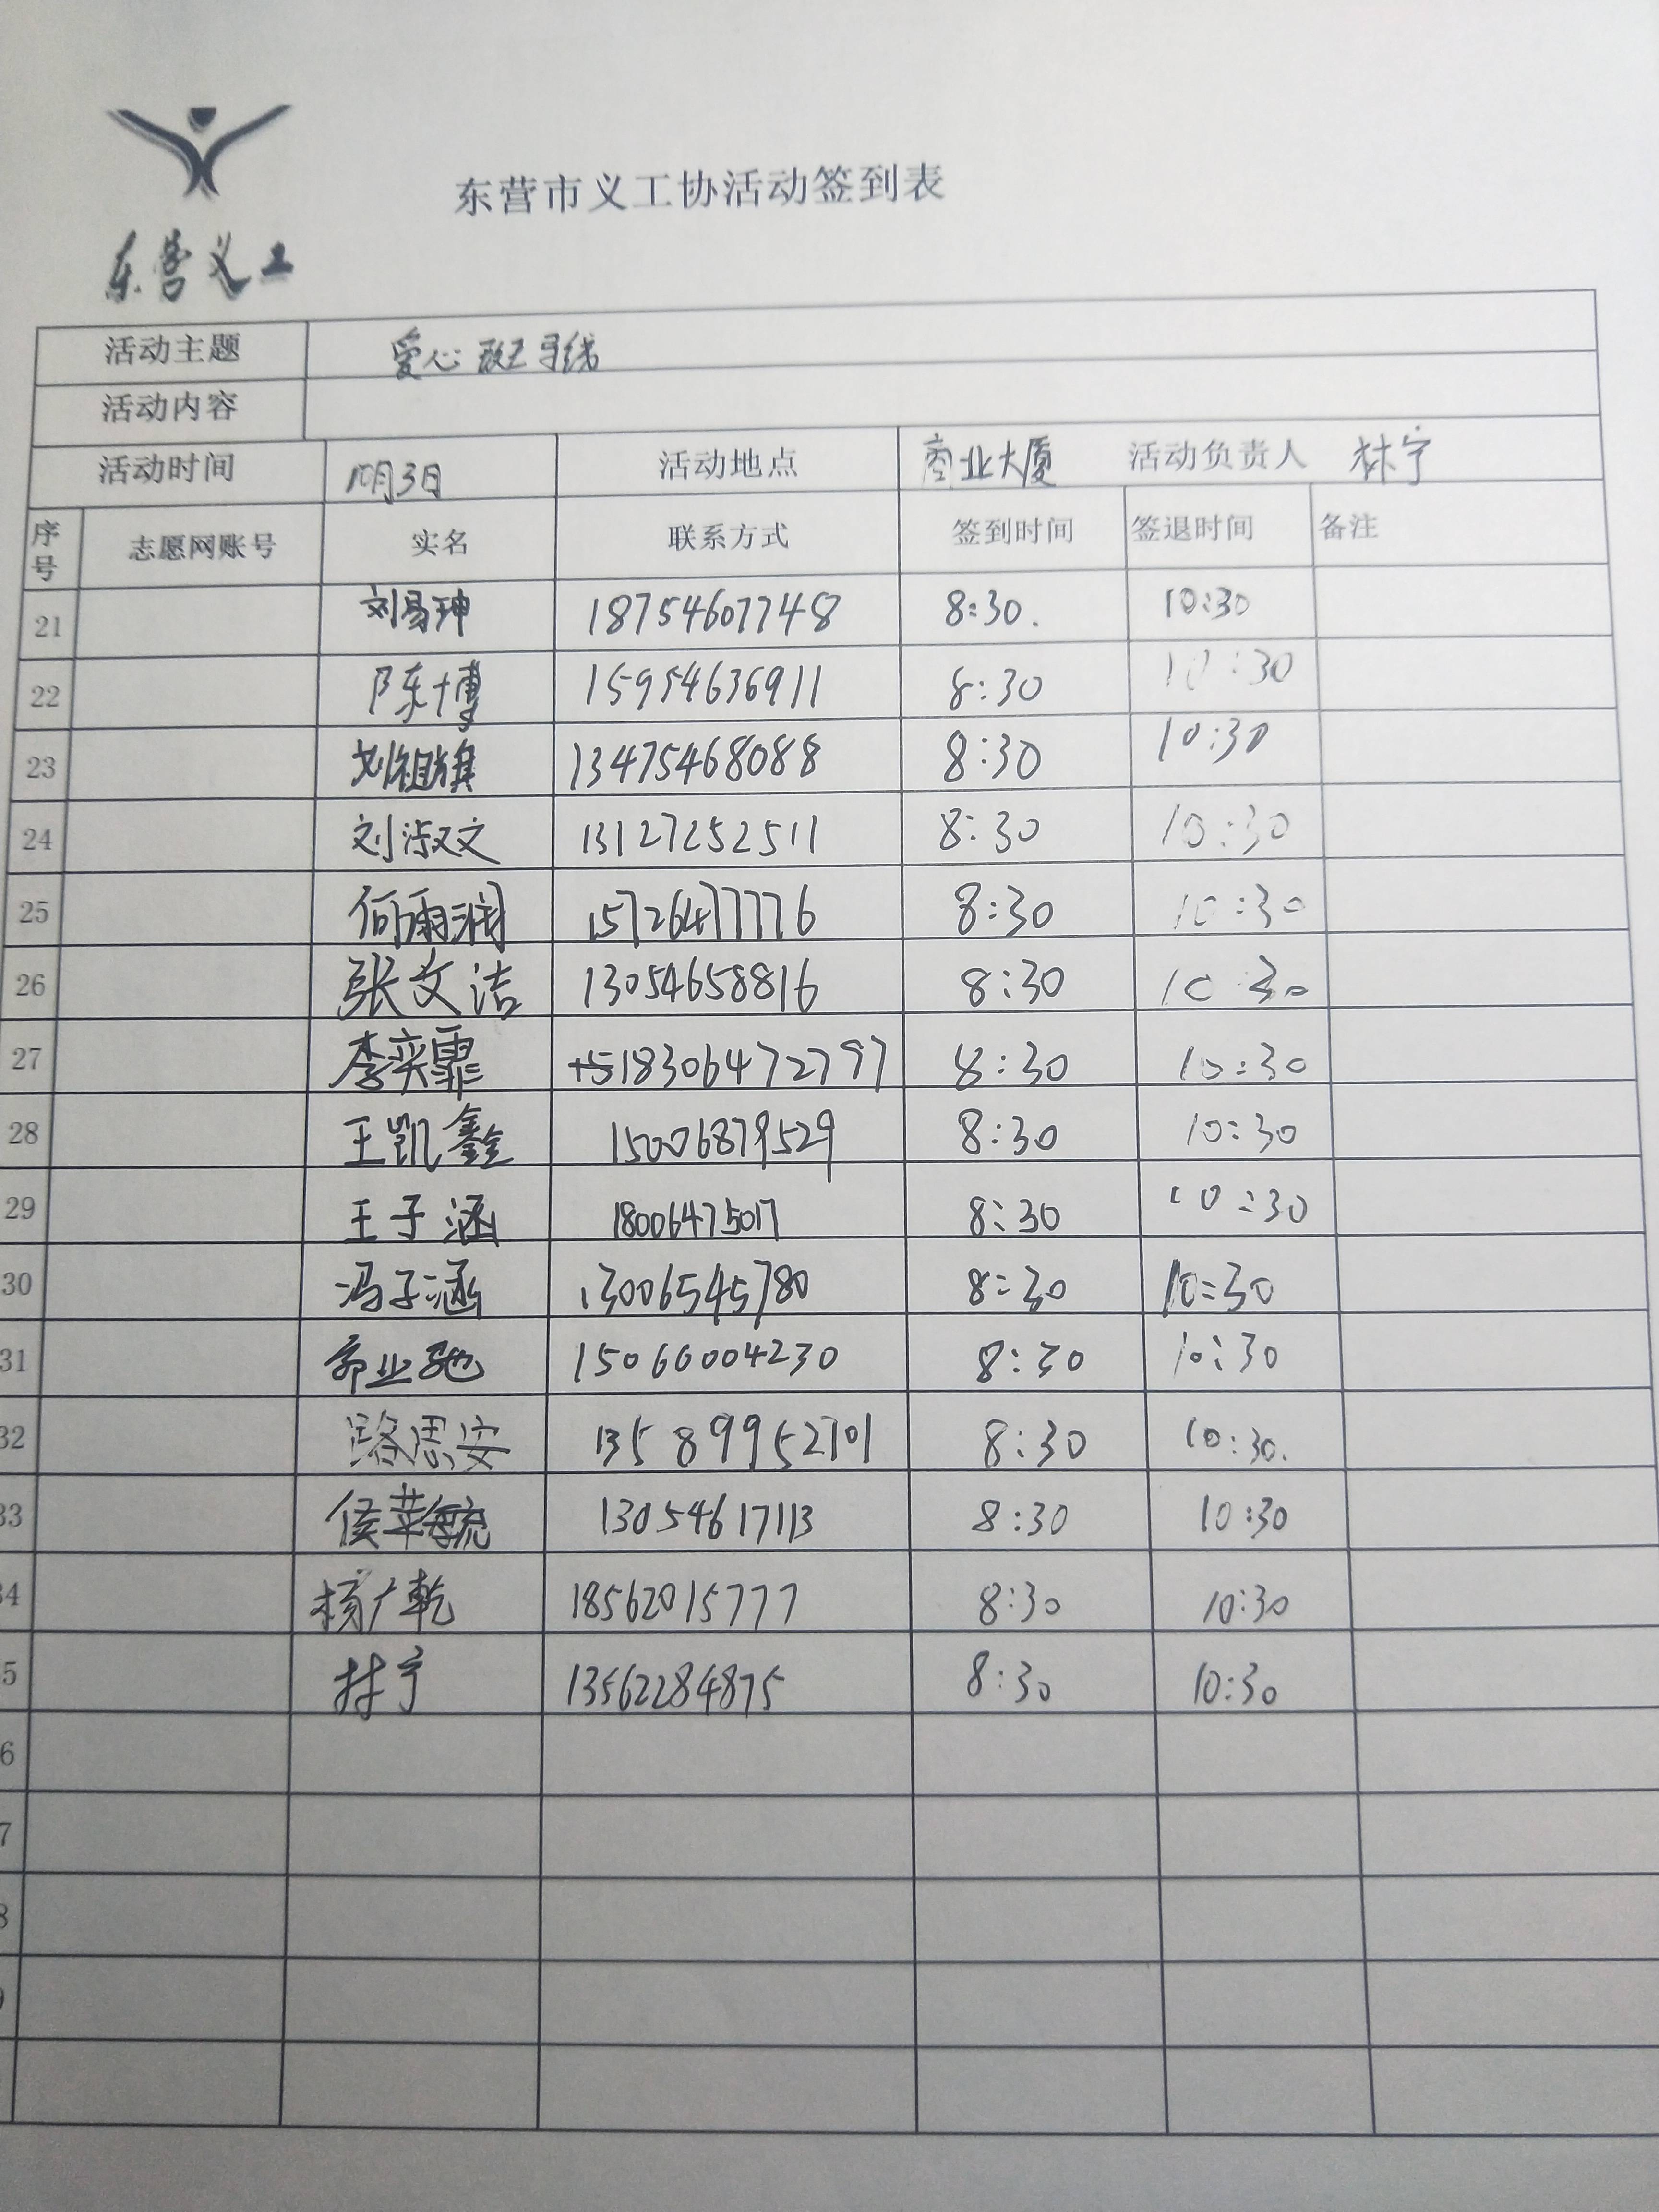 东营市义工协活动签到表
东营义工
活动主题 爱心斑马线
活动内容
活动时间 10月3日 活动地点 商业大厦 活动负责人 林宁
序号 志愿网账号 实名 联系方式 签到时间 签退时间 备注
21 刘易珅 18754607748 8:30. 10:30
22 陈博 15954636911 8:30 10:30
23 刘祖旗 13475468088 8:30 10:30
24 刘淑文 13127252511 8:30 10:30
25 何雨润 15726477776 8:30 10:30
26 张文洁 13054658816 8:30 10:30
27 李奕霏 18306472797 8:30 10:30
28 王凯鑫 15006879529 8:30 10:30
29 王子涵 18006475017 8:30 10:30
30 冯子涵 13006545780 8:30 10:30
31 15066004230 8:30 10:30
32 路思安 13589952701 8:30 10:30.
33 13054617113 8:30 10:30
4 广乾 18562015777 8:30 10:30
5 林宁 13562284875 8:30 10:30
6
7
8
9